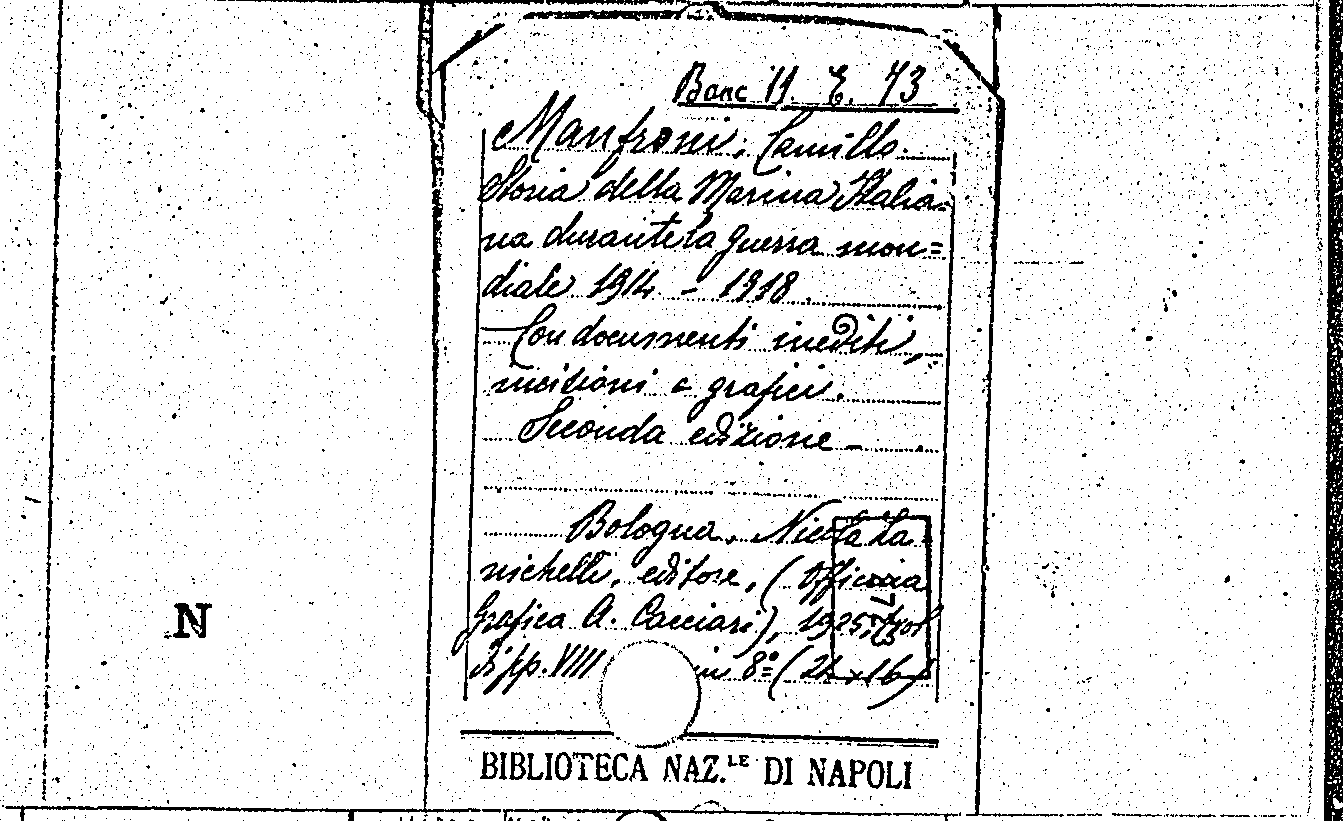 Banc. II. E. 73
Manfroni, Camillo.
Storia della Marina Italia=
na durante la guerra mon=
diale 1914 - 1918.
Con documenti inediti,
incisioni e grafici.
Seconda edizione -
Bologna, Nicola Za
nichelli, editore, (Officina
Grafica A. Cacciari), 1925,
di pp. VIII in 8º (24 x 16)
N
BIBLIOTECA NAZ.LE DI NAPOLI